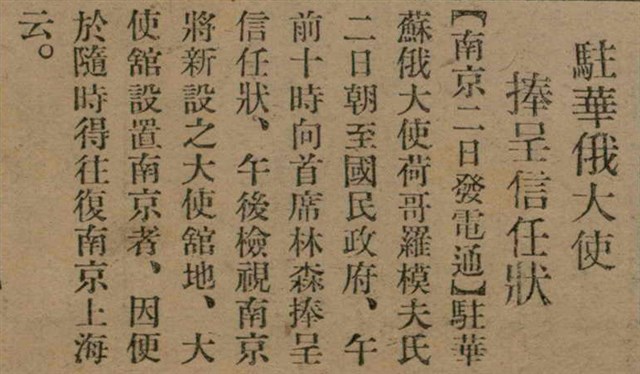 駐華俄大使
捧呈信任狀
【南京二日發電通】駐華
蘇俄大使荷哥羅模夫氏
二日朝至國民政府、午
前十時向首席林森捧呈
信任狀、午後檢視南京
將新設之大使舘地、大
使舘設置南京者、因便
於隨時得往復南京上海
云。